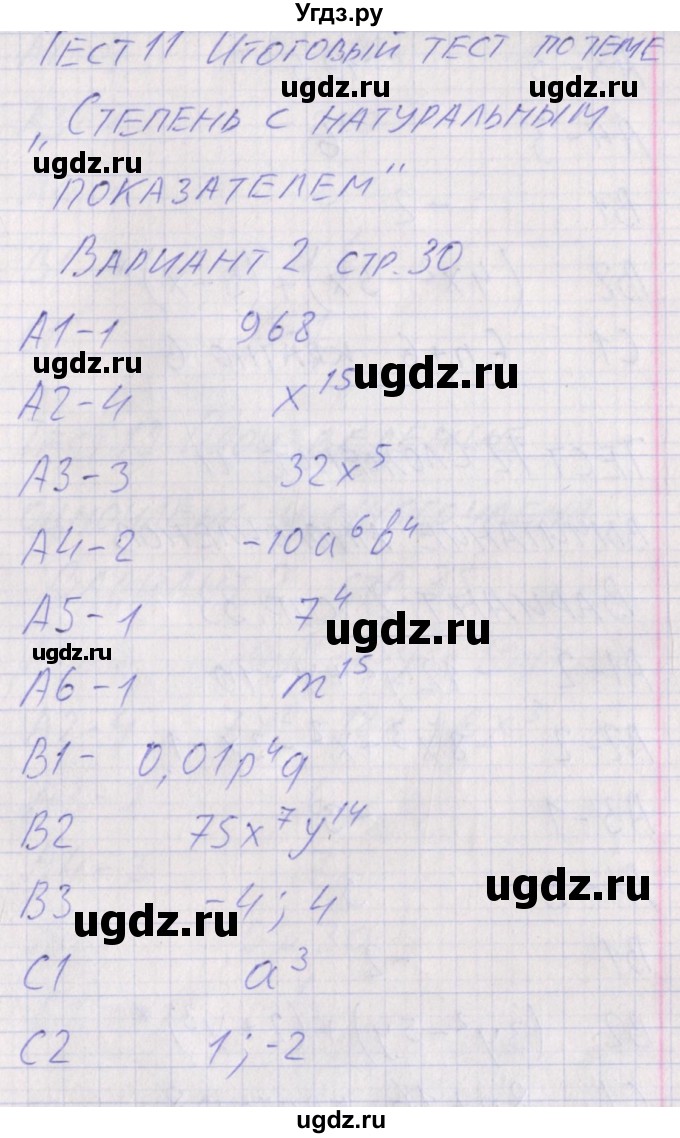 Угдз.ру
Тест 11 Итоговый тест по теме
ugdz.ru ugdz.ru
„Степень с натуральным
ugdz.ru
показателем“
Вариант 2 стр. 30
А1-1 968
ugdz.ru ugdz.ru
А2-4 x¹⁵
А3-3 32x⁵
А4-2 -10a⁶b⁴
А5-1 7⁴
ugdz.ru ugdz.ru
А6-1 m¹⁵
В1- 0,01p⁴q
В2 75x⁷y¹⁴
ugdz.ru
В3 -4; 4
ugdz.ru
С1 a³
С2 1; -2
ugdz.ru